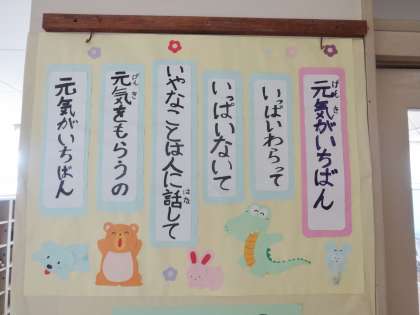 元気がいちばん
いっぱいわらって
いっぱいないて
いやなことは人に話して
元気をもらうの
元気がいちばん